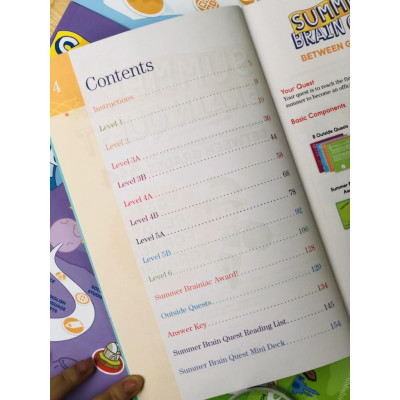 Contents
Instructions
Level 1
Level 2
Level 3A 30
Level 3B 44
Level 4A 56
Level 4B 68
Level 5A 78
Level 5B 92
Level 6 106
Summer Brainiac Award! 128
Outside Quests 129
Answer Key 134
Summer Brain Quest Reading List 145
Summer Brain Quest Mini Deck 154
SUMM
BRAIN Q
BETWEEN G
Your Quest
Your quest is to reach the
summer to become an
Basic Components
8 Outside Quests
Summer